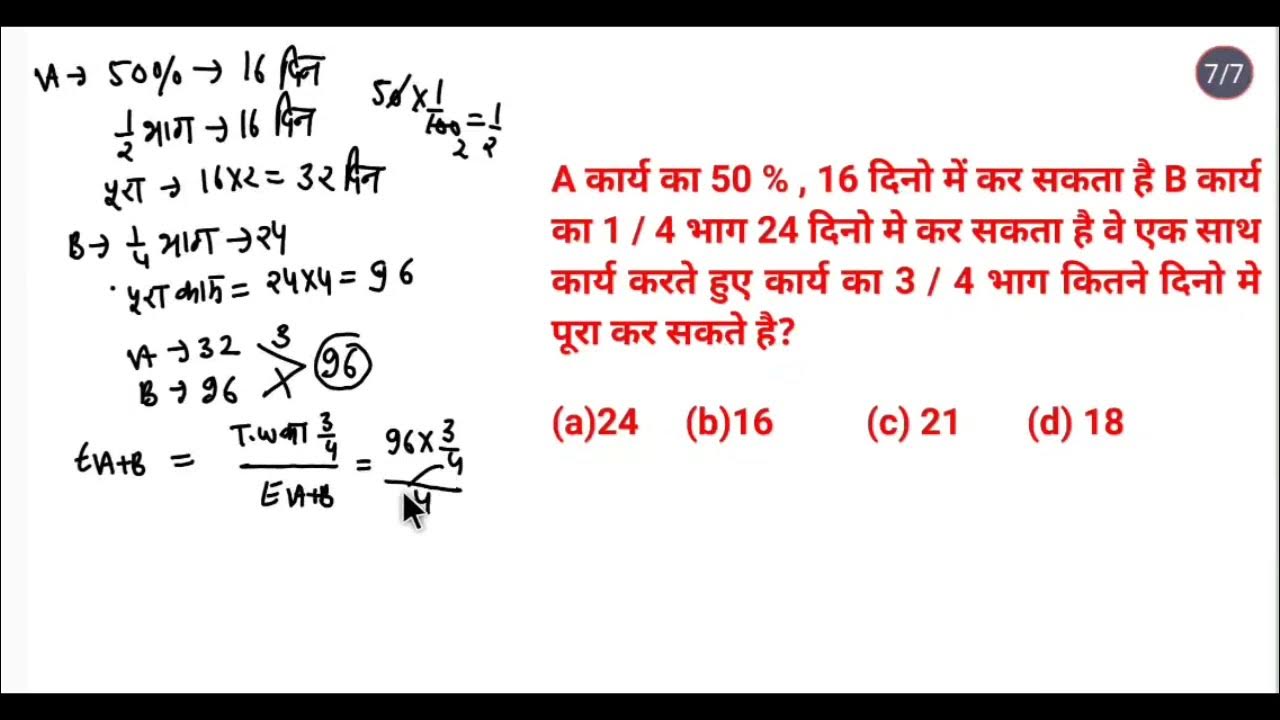 A → 50% → 16 दिन
1/2 भाग → 16 दिन
50 × 1/100 = 1/2
2
पूरा → 16×2 = 32 दिन
B → 1/4 भाग → 24
पूरा काम = 24×4 = 96
A → 32 3
B → 96 1
96
tA+B = T.W का 3/4 / EA+B = 96 × 3/4 / 4
7/7
A कार्य का 50 % , 16 दिनो में कर सकता है B कार्य
का 1 / 4 भाग 24 दिनो मे कर सकता है वे एक साथ
कार्य करते हुए कार्य का 3 / 4 भाग कितने दिनो मे
पूरा कर सकते है?
(a)24 (b)16 (c) 21 (d) 18